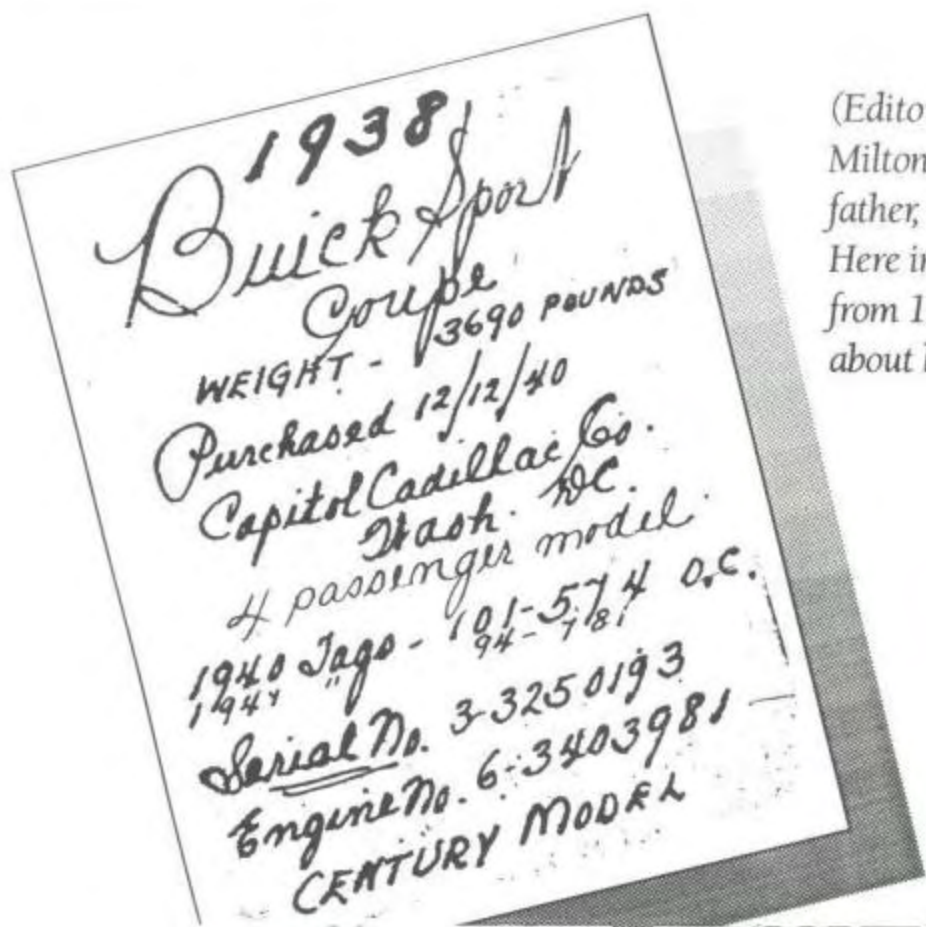 1938
Buick Sport
Coupe
WEIGHT - 3690 POUNDS
Purchased 12/12/40
Capitol Cadillac Co.
Wash. DC.
4 passenger model
1940 Tags - 101-574 D.C.
194 " 94-781
Serial No. 3-3250193
Engine No. 6-3403981
CENTURY MODEL
(Edito
Milton
father,
Here in
from 1
about